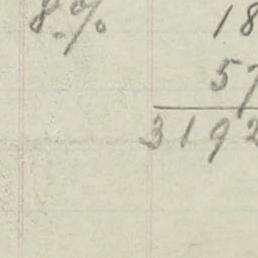 8% 18
57
3192